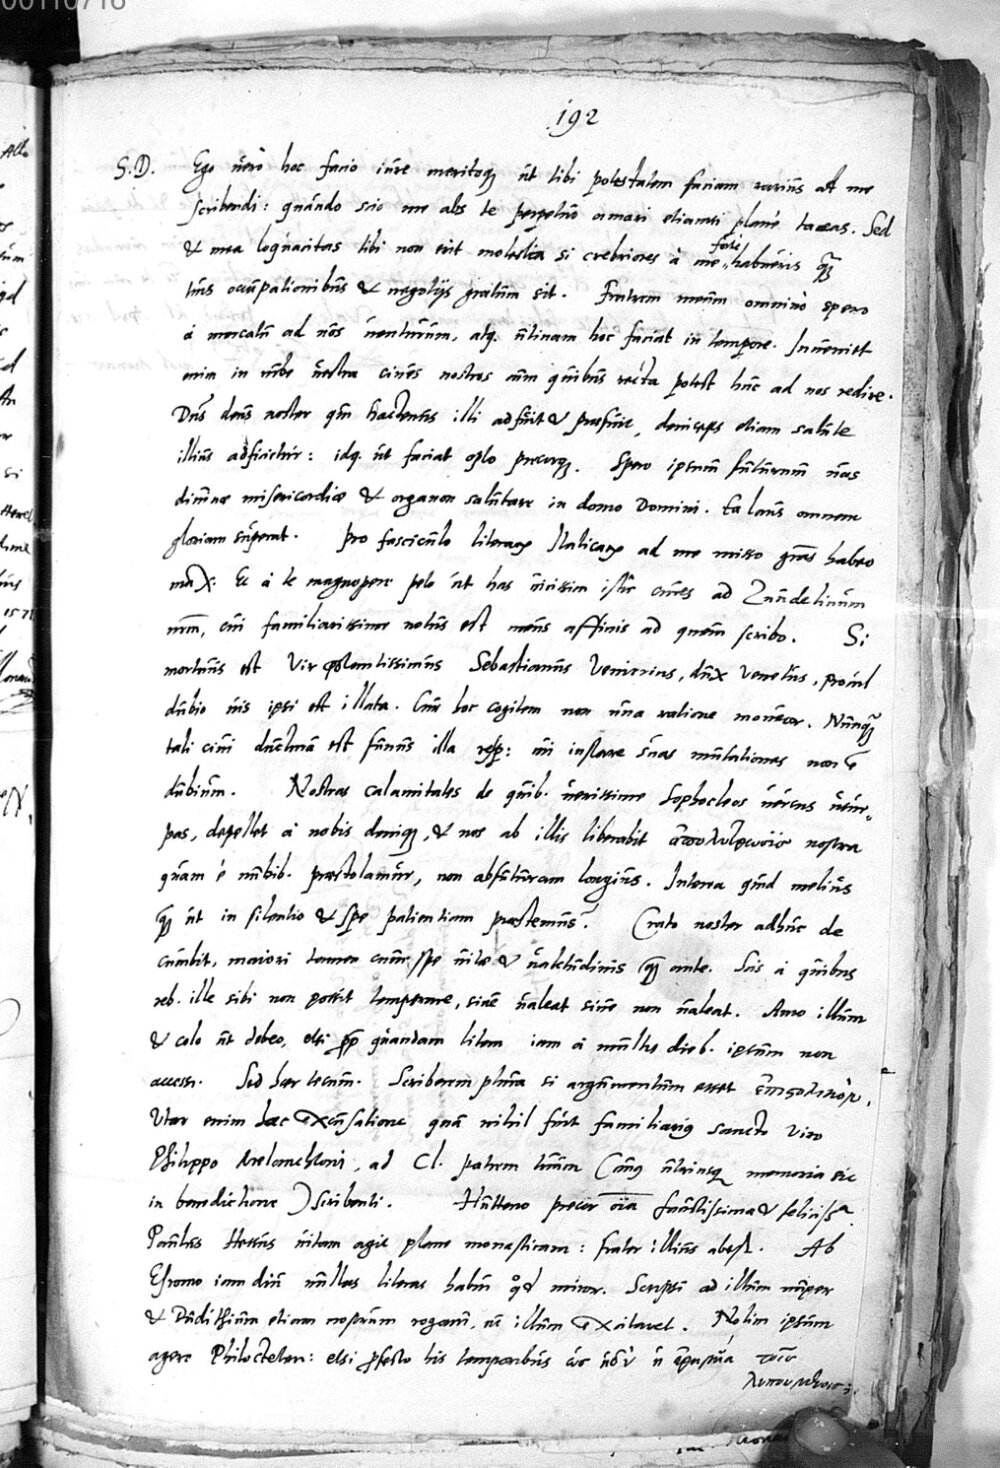 192
S.D. Ego verò hoc facio iure meritoq; ut tibi potestatem faciam rariùs ad me
scribendi: quando scio me abs te perpetuò amari etiamsi planè taceas. Sed
& mea loquacitas tibi non erit molesta si crebriores à me forte habueris q̃
tuis occupationibus & negotijs gratum sit. Fratrem meum omnino spero
à mercatu ad nos venturum, atq; utinam hoc faciat in tempore. Inveniet
enim in urbe vestra cives nostros cum quibus recta potest huc ad nos redire.
Dns deus noster qui hactenus illi adfuit & praefuit, deinceps etiam salute
illius adficietur: idq; ut faciat opto precorq;. Spero ipsum futurum vas
divinae misericordiae & organon salutare in domo Domini. Ea laus omnem
gloriam superat. Pro fasciculo literarum Italicarum ad me misso gras habeo
max. Et à te magnopere peto ut has vicissim istuc cures ad Zundelinum
nrm, cui familiarissime notus est meus affinis ad quem scribo. Si
mortuus est Vir potentissimus Sebastianus Venierius, dux Venetus, procul
dubio vis ipsi est illata. Cum hoc cogitem non una ratione moveor. Nunquã
tali civi
dubium. Nostras calamitates de quib. verissime Sophocleos versus usur-
pas, depellet à nobis deniq;, & nos ab illis liberabit ἀπολύτρωσις nostra
quam è nubib. praestolamur, non abfuturam longius. Interea quid melius
q̃ ut in silentio & spe patientiam praestemus? Crato noster adhuc de
cumbit, maiori tamen cum spe vitae & valetudinis q̃ ante. Scis à quibus
reb. ille sibi non possit temperare, sive valeat sive non valeat. Amo illum
& colo ut debeo, etsi ppt quandam litem iam à multis dieb. ipsum non
accessi. Sed haec tecum. Scriberem plura si argumentum esset
Utor enim hac excusatione qua nihil fuit familiarius sancto viro
Philippo Melanchthoni, ad Cl. patrem tuum (cuius utriusq; memoria sit
in benedictione) scribenti. Hutteno precor oia faustissima & feliciss.ª
Paulus Hessus vitam agit plane monasticam: frater illius abest. Ab
Esromo iam diu nullas literas habui q̊d miror. Scripsi ad illum nuper
& Dudithium etiam nostrum rogavi, ut illum excitaret. Nolim ipsum
agere Philocteten: etsi profecto his temporibus ὡς ἡδύ